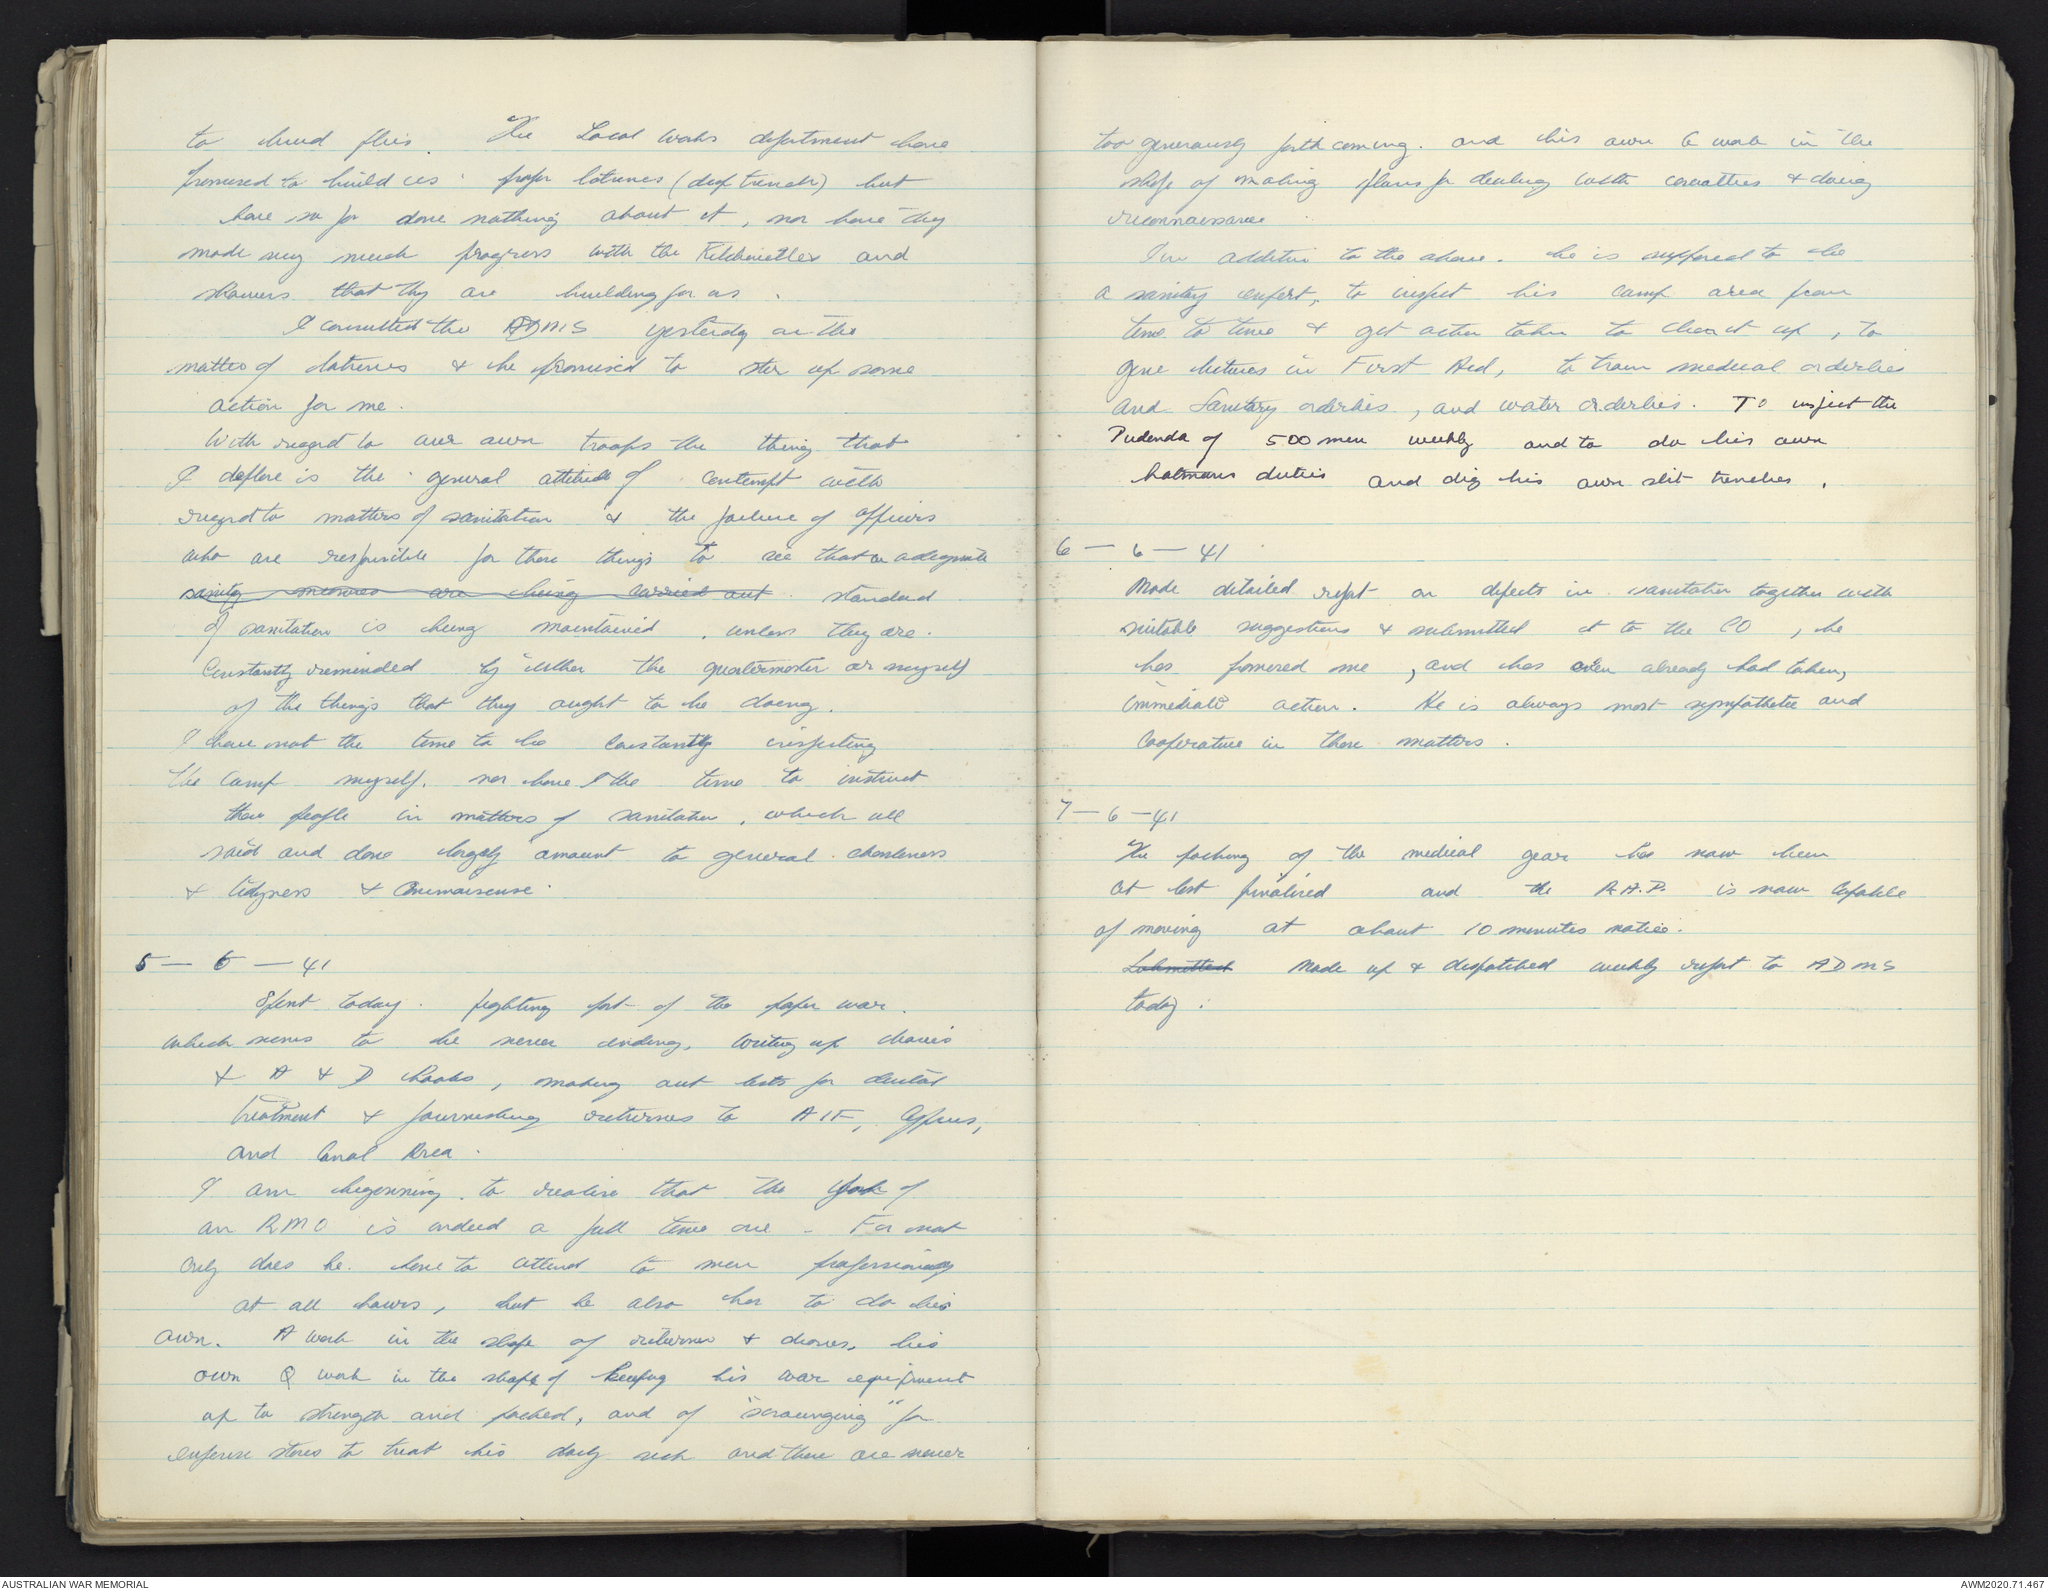 to breed flies. The Local works department have
promised to build us proper latrines (deep trench) but
have so far done nothing about it, nor have they
made very much progress with the Kitchenettes and
showers that they are building for us.
I consulted the ADMS yesterday on the
matter of latrines & he promised to stir up some
action for me.
With regard to our own troops the thing that
I deplore is the general attitude of contempt with
regard to matters of sanitation & the failure of officers
who are responsible for these things to see that an adequate
sanitary measures are being carried out standard
of sanitation is being maintained, unless they are
Constantly reminded by either the quartermaster or myself
of the things that they ought to be doing.
I have not the time to be constantly inspecting
the camp myself, nor have I the time to instruct
these people in matters of sanitation, which all
said and done largely amount to general cleanliness
& tidyness & commonsense.
5 - 6 - 41
Spent today fighting part of the paper war.
which seems to be never ending, writing up diaries
& A & D books, making out lists for dental
treatment & furnishing returns to AIF, Cyprus,
and Canal Area.
I am beginning to realise that the job of
an RMO is indeed a full time one - For not
only does he have to attend to men professionally
at all hours, but he also has to do his
own. A work in the shape of returns & diaries, his
own Q work in the shape of keeping his war equipment
up to strength and packed, and of "scrounging" for
expense stores to treat his daily sick and these are never
too generously forthcoming. and his own G work in the
shape of making plans for dealing with casualties & doing
reconnaissance
In addition to the above. he is supposed to be
a sanitary expert, to inspect his camp area from
time to time & get action taken to clean it up, to
give lectures in First Aid, to train medical orderlies
and Sanitary orderlies, and water orderlies. To inspect the
Pudenda of 500 men weekly and to do his own
batmans duties and dig his own slit trenches.
6 - 6 - 41
Made detailed report on defects in sanitation together with
suitable suggestions & submitted it to the CO, he
has promised me, and has even already had taken,
immediate action. He is always most sympathetic and
cooperative in these matters.
7 - 6 - 41
The packing of the medical gear has now been
at last finalised and the R.A.P. is now capable
of moving at about 10 minutes notice.
Submitted Made up & despatched weekly report to ADMS
today.
AUSTRALIAN WAR MEMORIAL
AWM2020.71.467